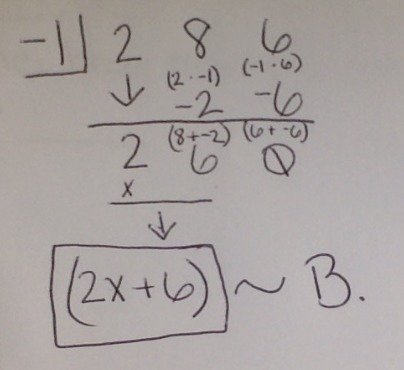 -1 2 8 6
(2 · -1) (-1 · 6)
↓ -2 -6
(8+-2) (6+-6)
2 6 0
x
↓
(2x+6) ~ B.